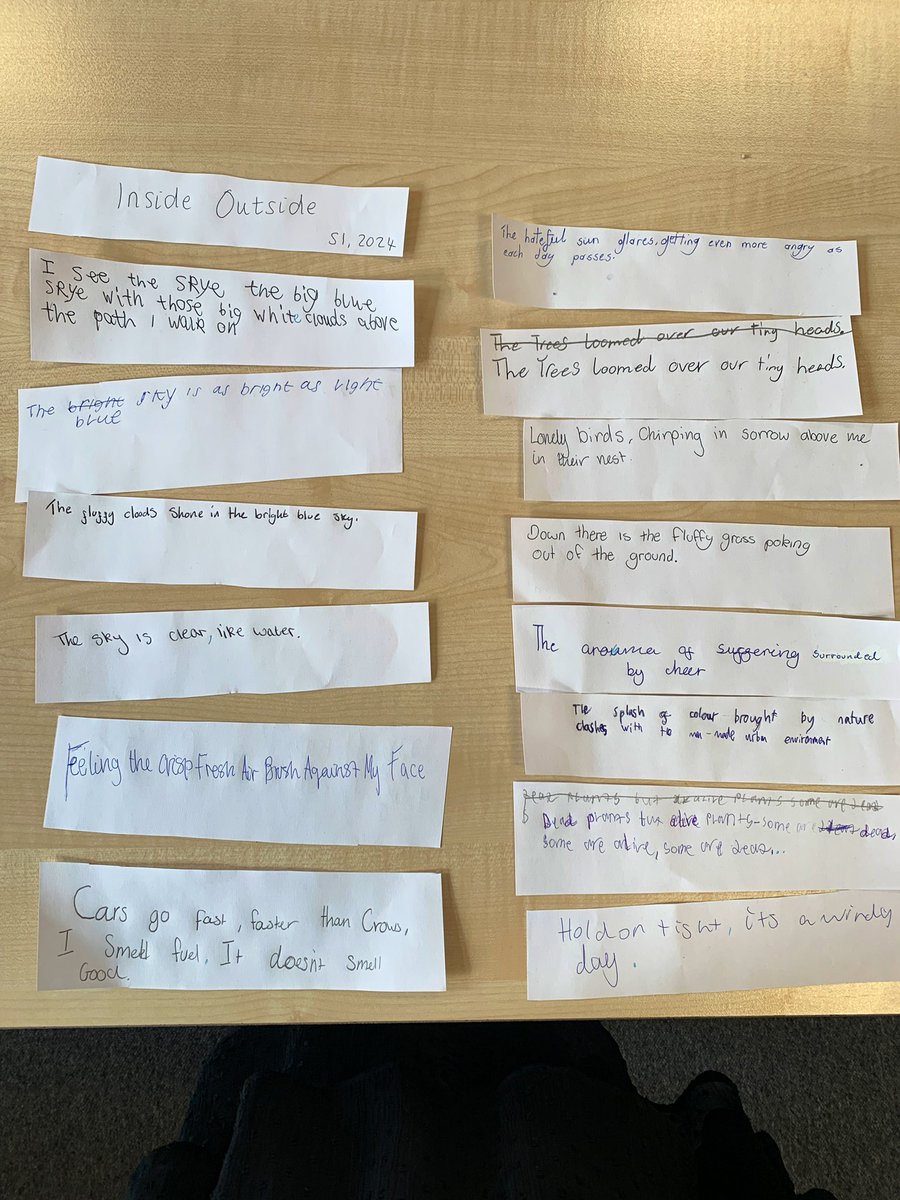 Inside Outside
S1, 2024
I see the SRye, the big blue
SRye with those big white clouds above
the path I walk on
The bright sky is as bright as light
blue
The fluggy clouds shone in the bright blue sky.
The sky is clear, like water.
Feeling the crisp Fresh Air Brush Against My Face
Cars go fast, faster than Crows,
I Smell fuel, It doesn't smell
Good.
The hateful sun glares, getting even more angry as
each day passes.
The Trees loomed over our tiny heads.
The Trees loomed over our tiny heads.
Lonely birds, Chirping in sorrow above me
in their nest.
Down there is the fluffy grass poking
out of the ground.
The of suggering surrounded
by cheer
The splash of colour brought by nature
clashes with the man-made urban environment
Dead plants but alive plants some are dead
Dead plants but alive plants-some are dead,
some are alive, some are dead...
Hold on tight, its a windy
day.